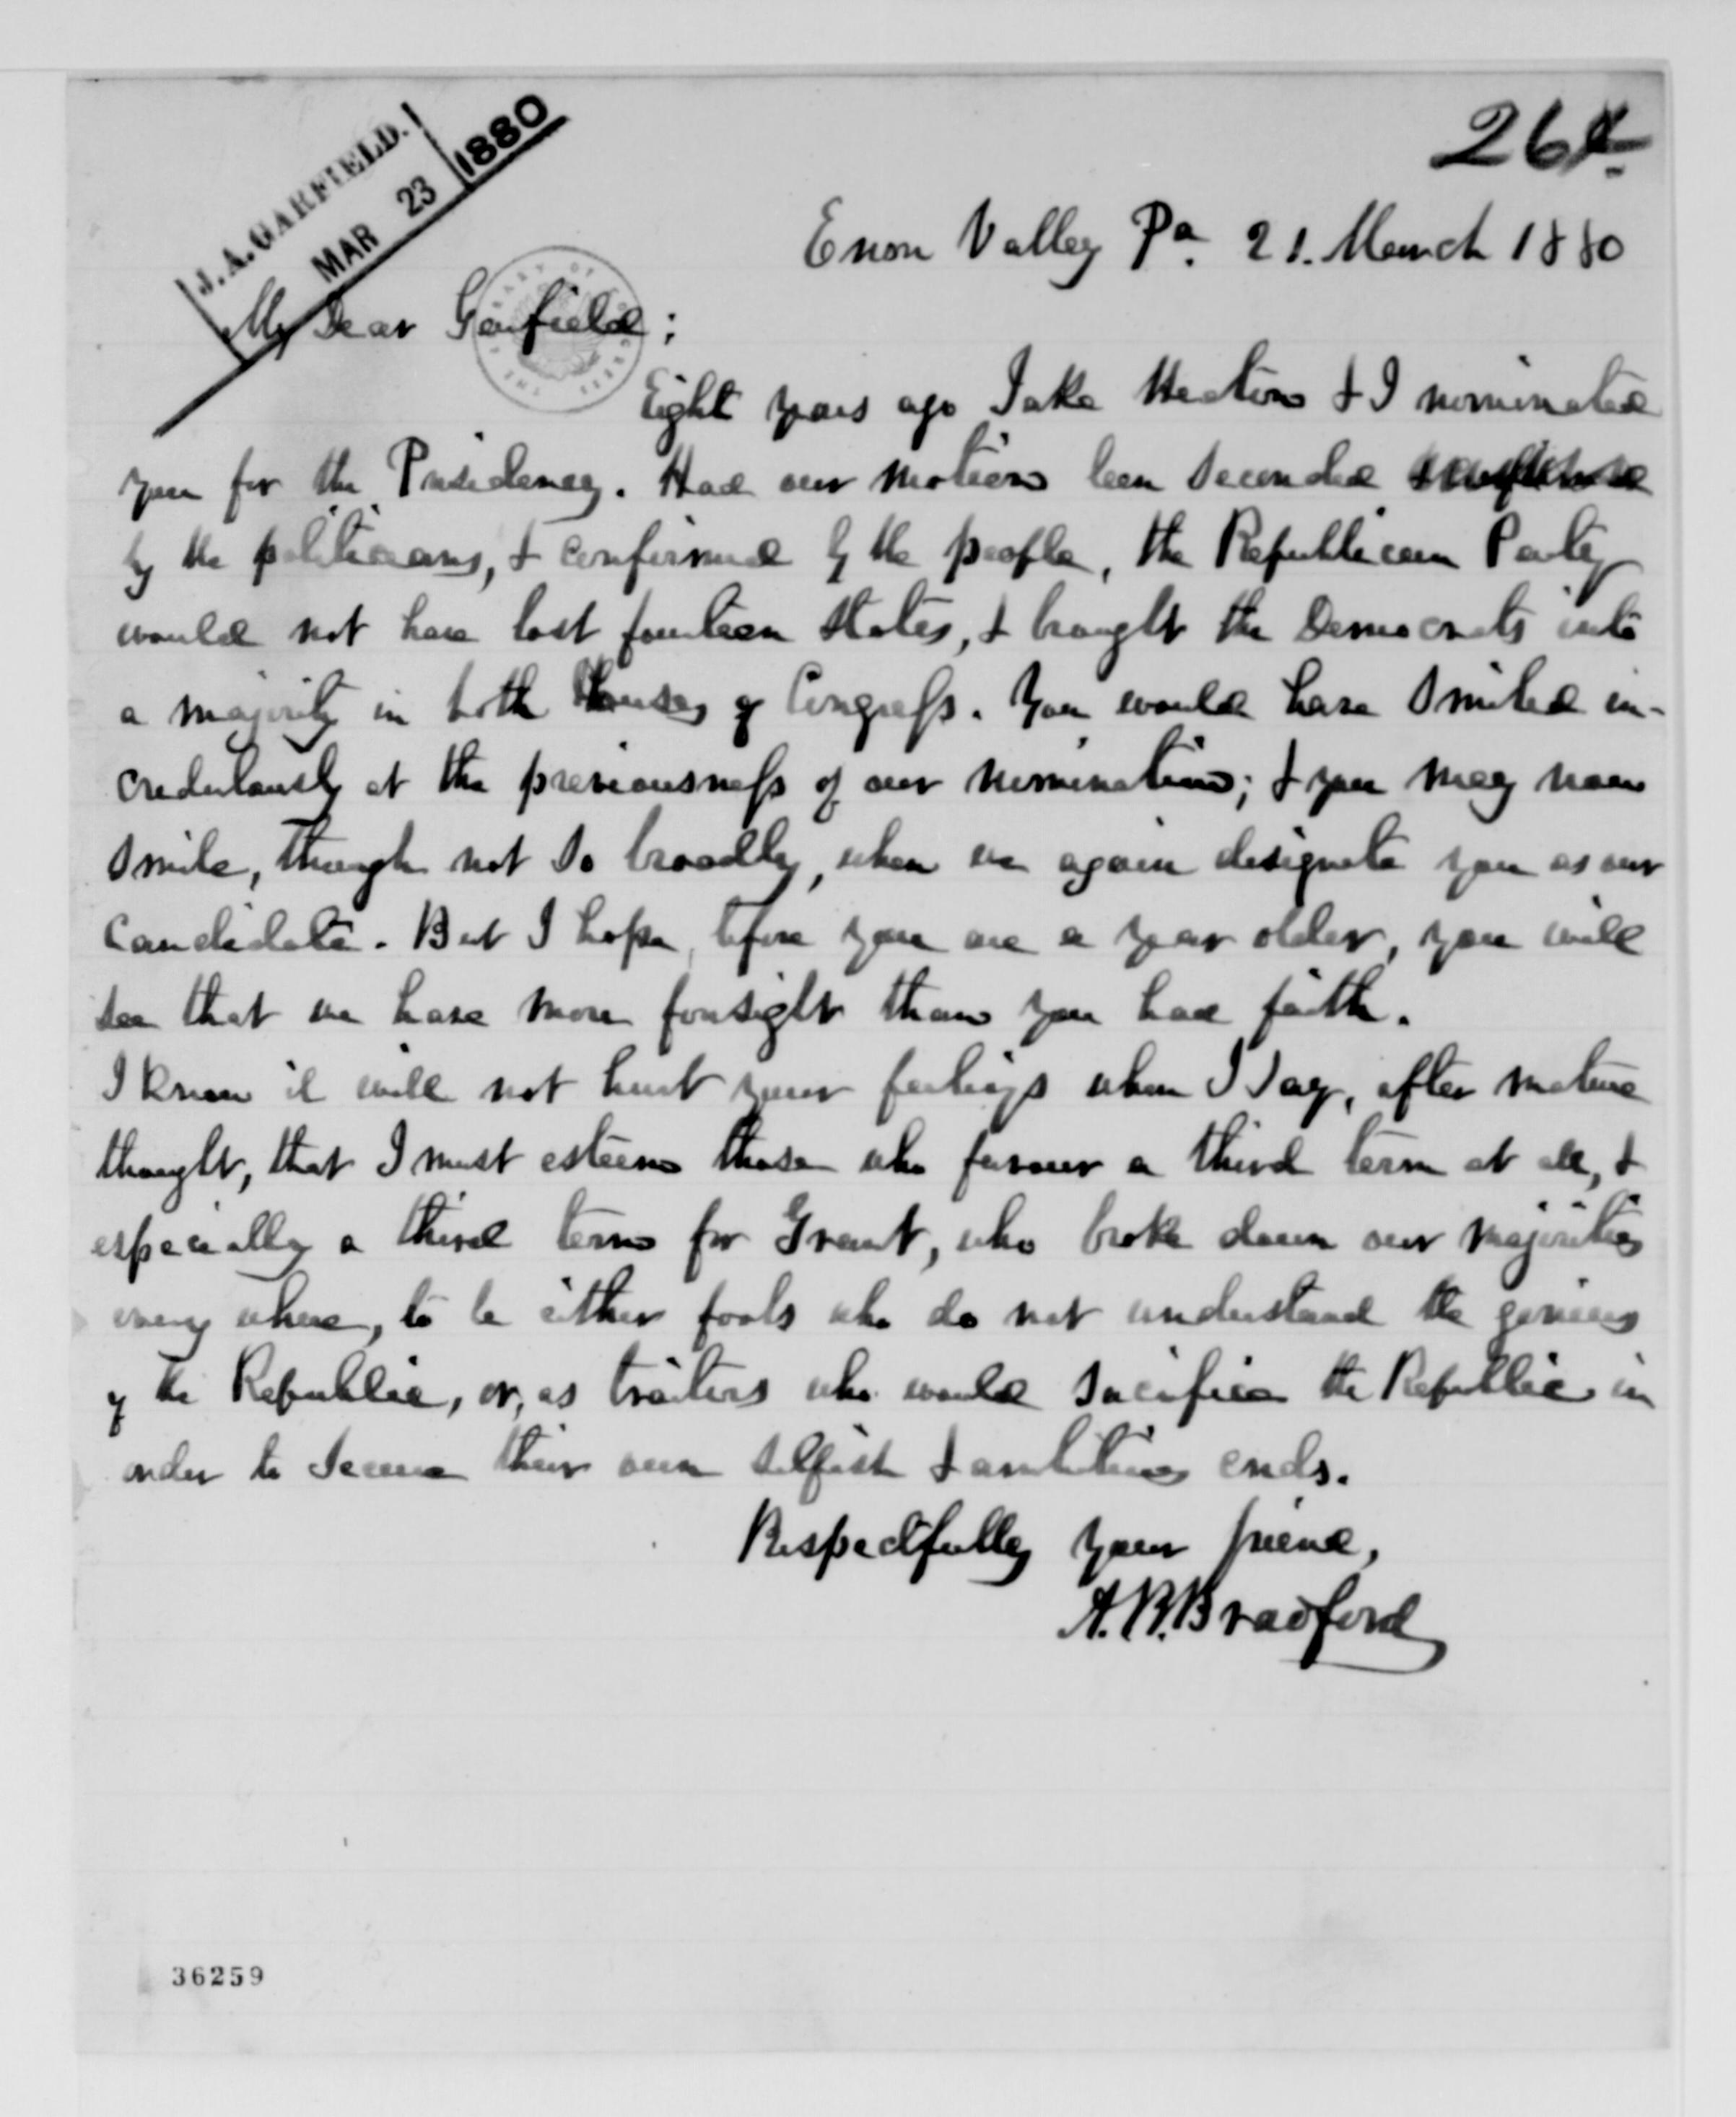 J. A. GARFIELD.
MAR 23 1880
264
Enon Valley Pa. 21. March 1880
My Dear Garfield;
Eight years ago Jake Heaton & I nominated
you for the Presidency. Had our motion been seconded
by the politicians, & confirmed by the people, the Republican Party
would not have lost fourteen States, & brought the Democrats into
a majority in both Houses of Congress. You would have smiled in-
credulously at the previousness of our nomination; & you may now
smile, though not so broadly, when we again designate you as our
Candidate. But I hope, before you are a year older, you will
see that we have more foresight than you had faith.
I know it will not hurt your feelings when I say, after mature
thought, that I must esteem those who favour a third term at all, &
especially a third term for Grant, who broke down our majorities
every where, to be either fools who do not understand the genius
of the Republic, or, as traitors who would sacrifice the Republic in
order to secure their own selfish & ambitious ends.
Respectfully your friend,
A. B. Bradford
36259